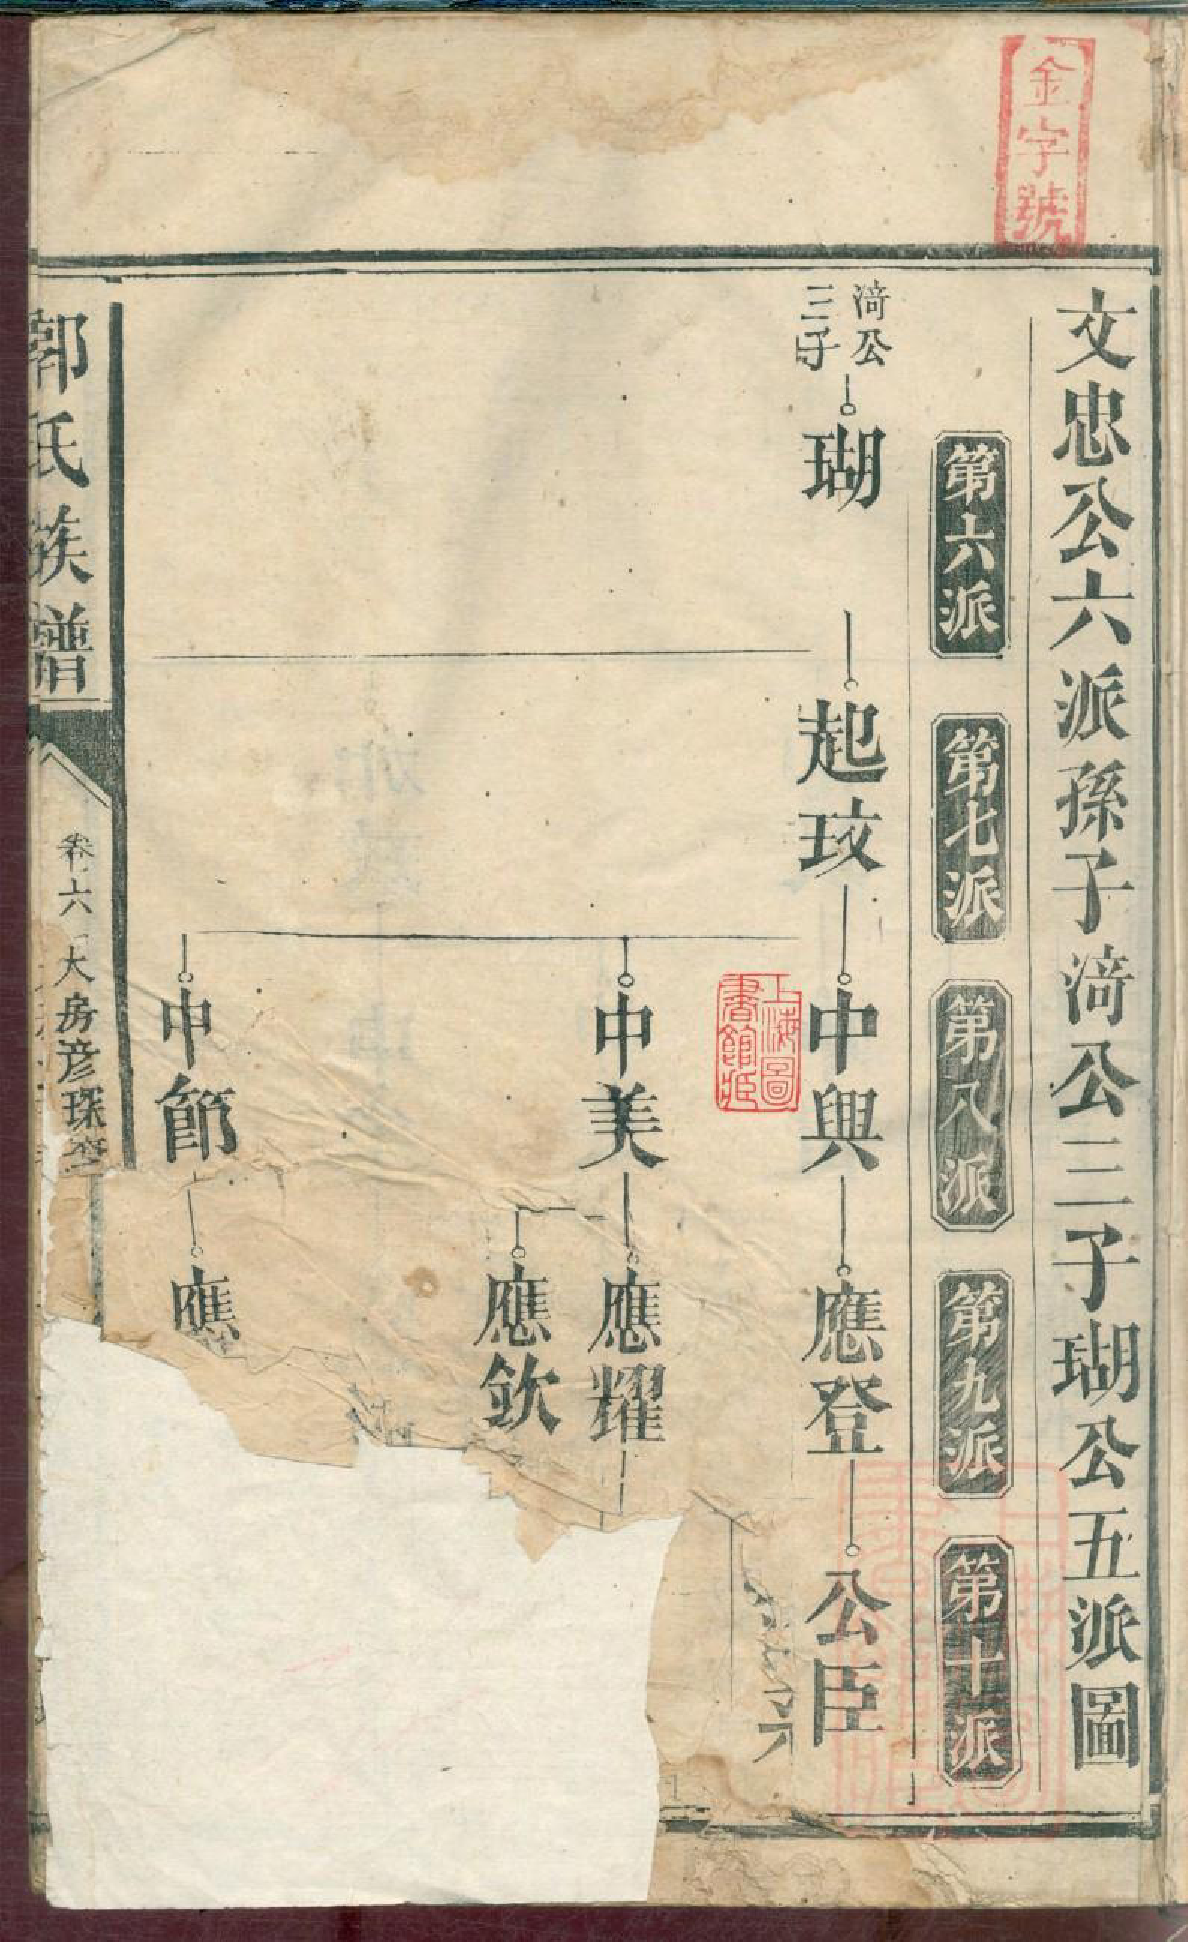 金字號
文忠公六派孫子渏公三子瑚公五派圖
第六派
第七派
第八派
第九派
第十派
渏公
三子
瑚
起玟
中興
應登
公臣
上海圖
書館藏
中美
應耀
應欽
中節
應
郭氏族譜
卷六大房彦琛